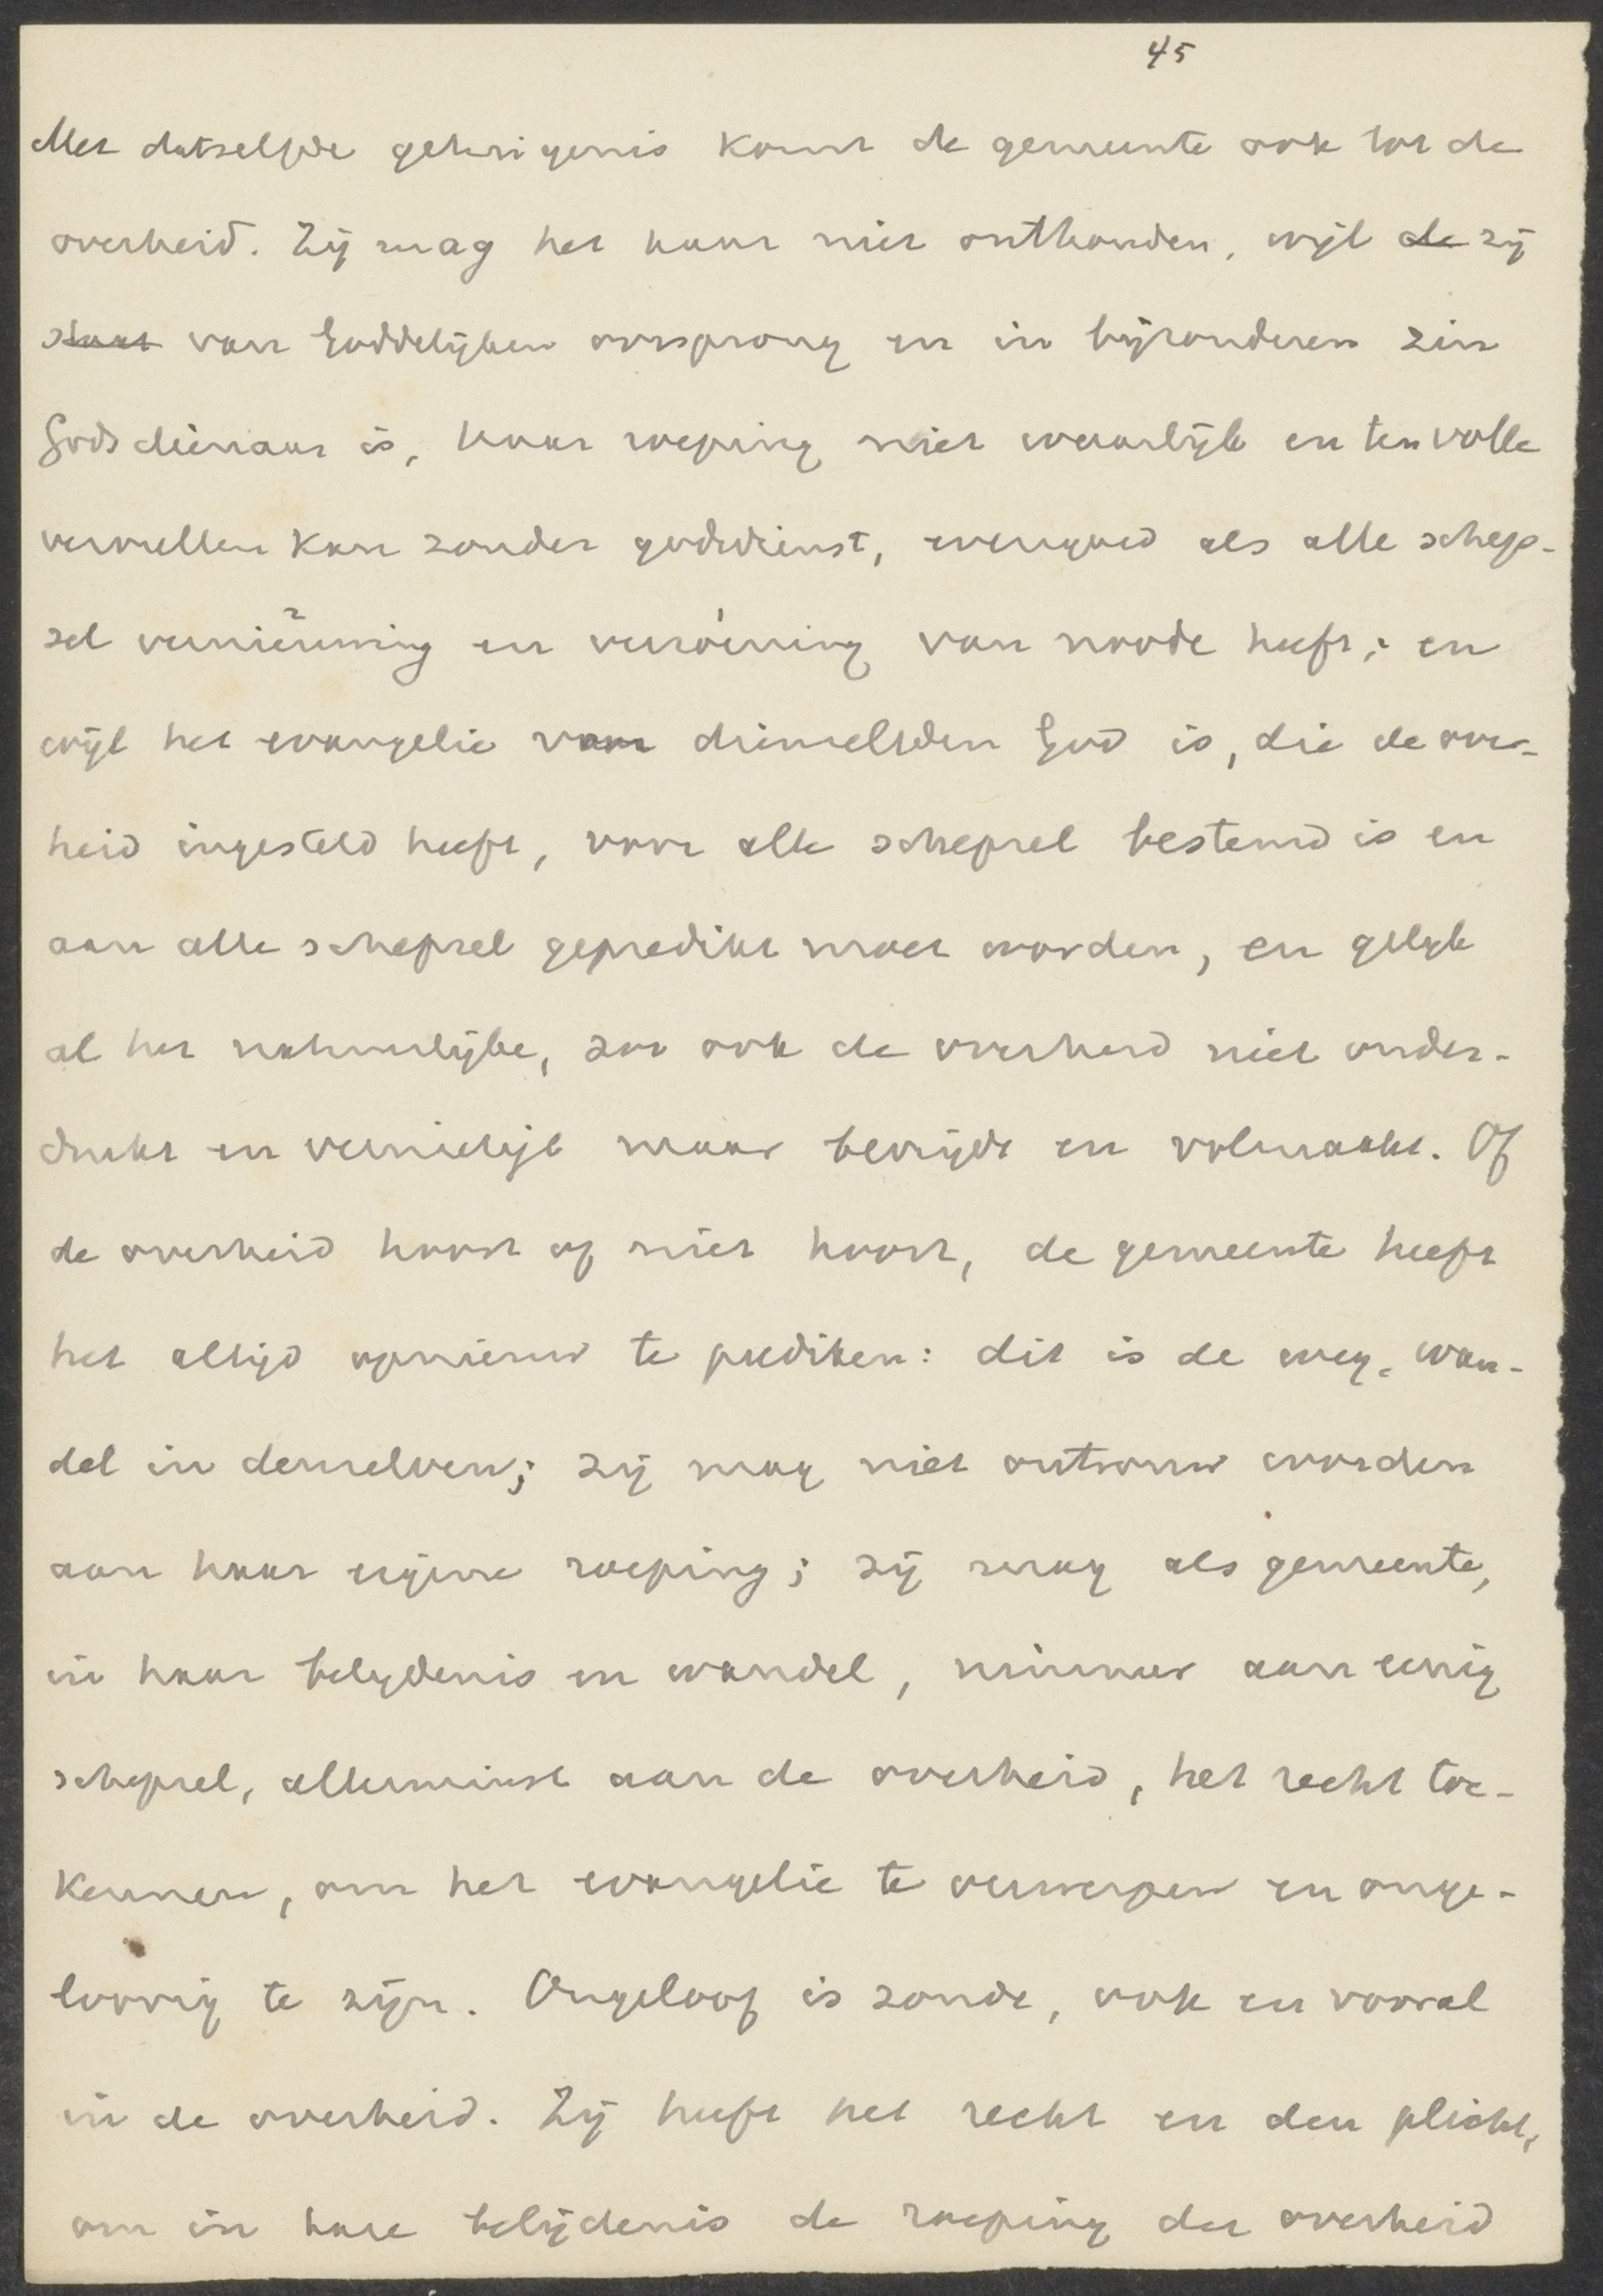 45
Met datzelfde getuigenis komt de gemeente ook tot de
overheid. Zij mag het haar niet onthouden, wijl de zij
staat van Goddelijken oorsprong en in bijzonderen zin
Gods dienaar is, haar roeping niet waarlijk en ten volle
vervullen kan zonder godsdienst, evengoed als alle schep-
sel vernieuwing en verzoening van noode heeft; en
wijl het evangelie van dienzelfden God is, die de over-
heid ingesteld heeft, voor alle schepsel bestemd is en
aan alle schepsel gepredikt moet worden, en gelijk
al het natuurlijke, zoo ook de overheid niet onder-
drukt en vernietigt maar bevrijdt en volmaakt. Of
de overheid hoort of niet hoort, de gemeente heeft
het altijd opnieuw te prediken: dit is de weg, wan-
del in denzelven; zij mag niet ontrouw worden
aan haar eigene roeping; zij mag als gemeente,
in haar belijdenis en wandel, nimmer aan eenig
schepsel, allerminst aan de overheid, het recht toe-
kennen, om het evangelie te verwerpen en onge-
loovig te zijn. Ongeloof is zonde, ook en vooral
in de overheid. Zij heeft het recht en den plicht,
om in hare belijdenis de roeping der overheid